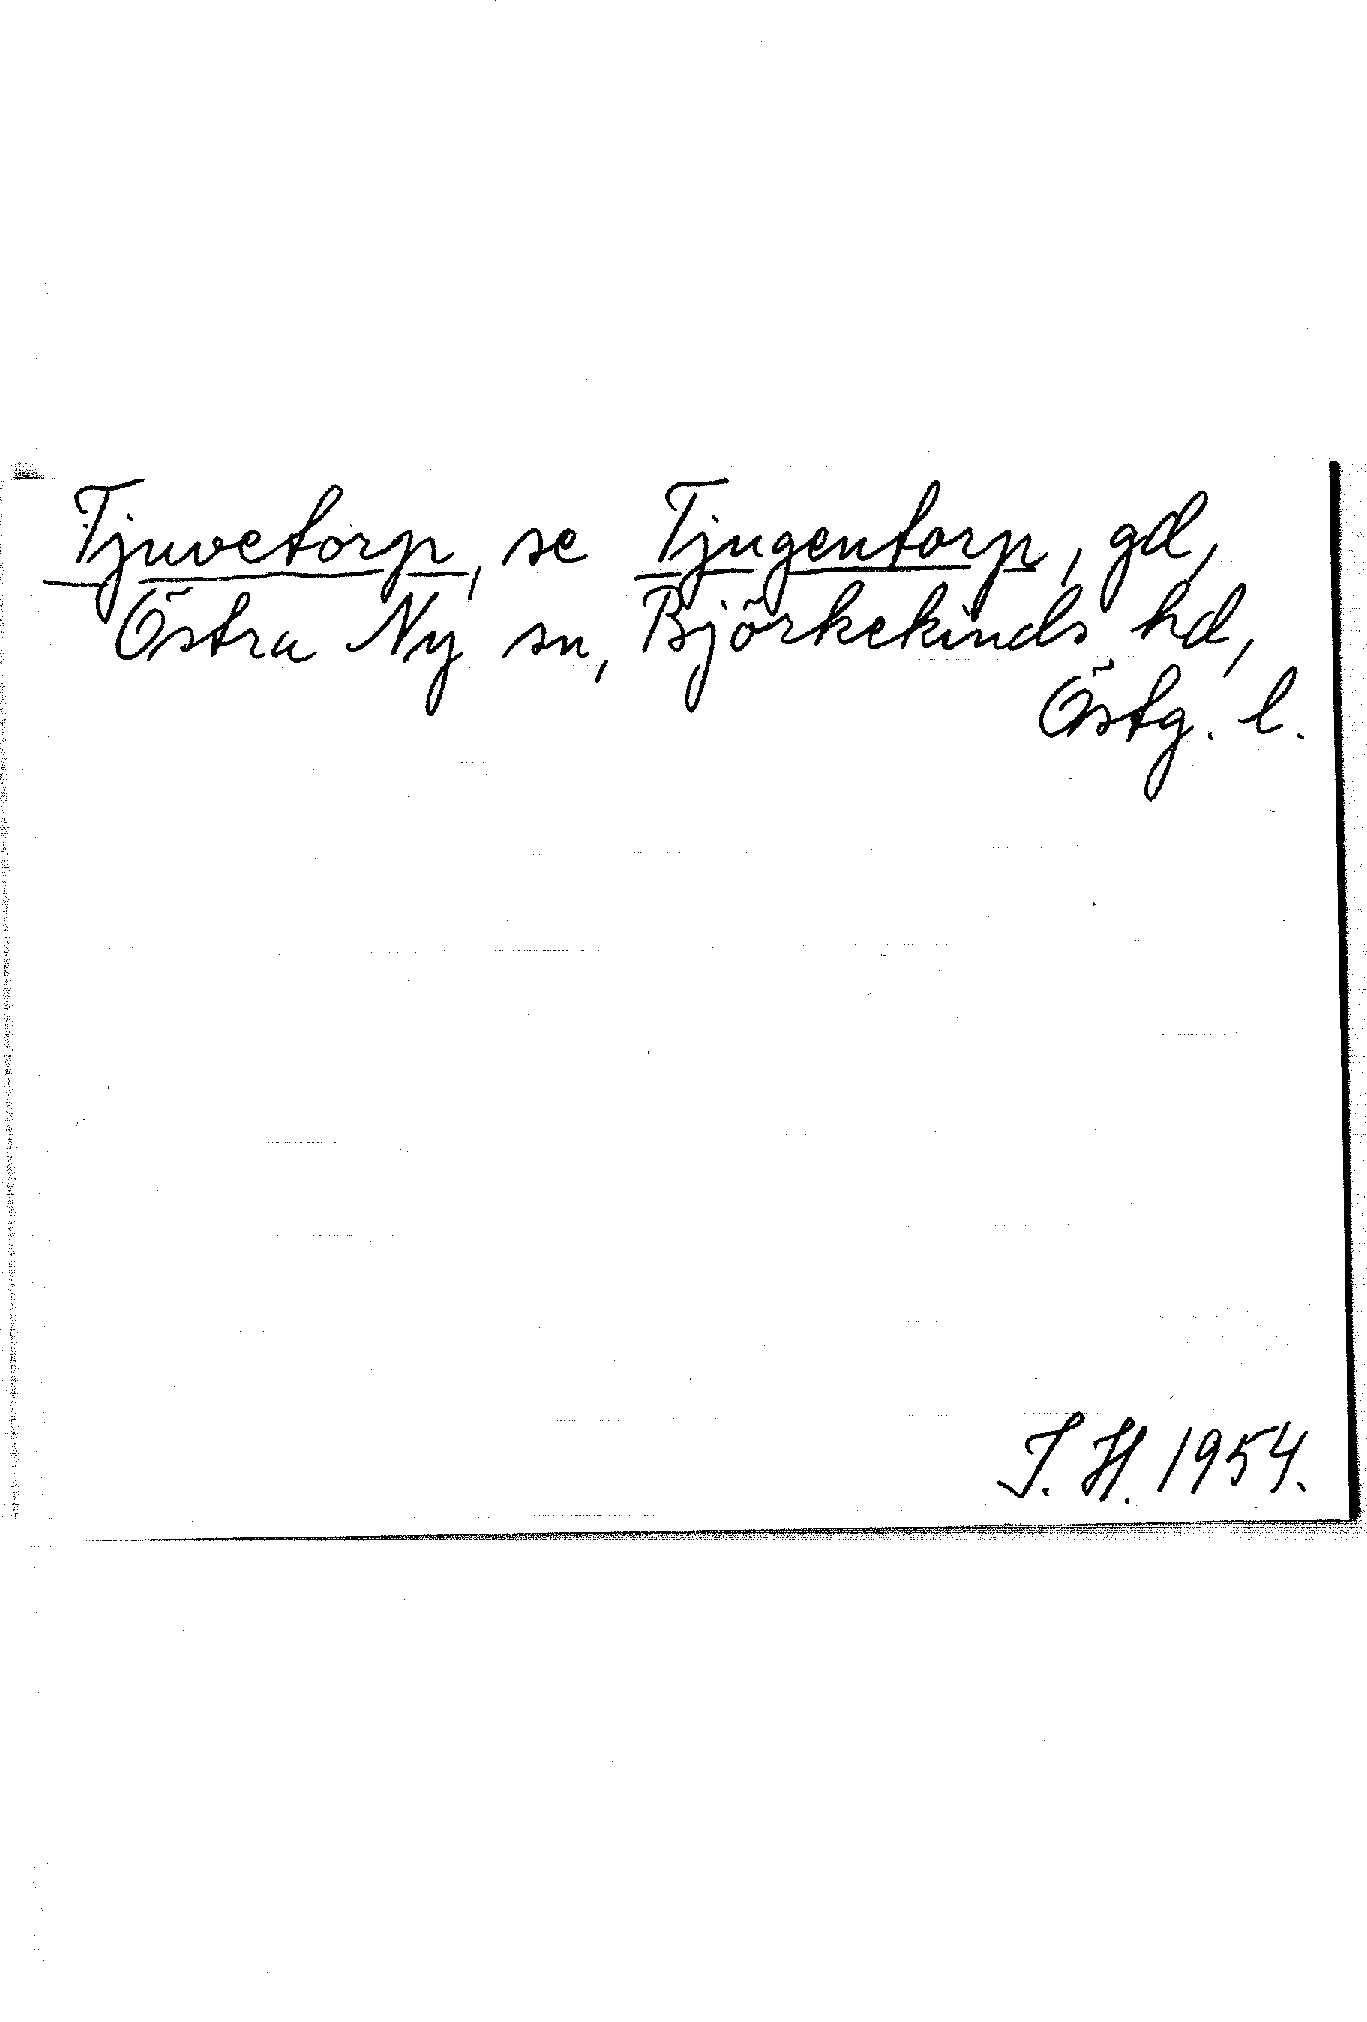 Tjuvetorp, se Tjugentorp, gd,
Östra Ny sn, Björkekinds hd,
Östg. l.
I. H. 1954.